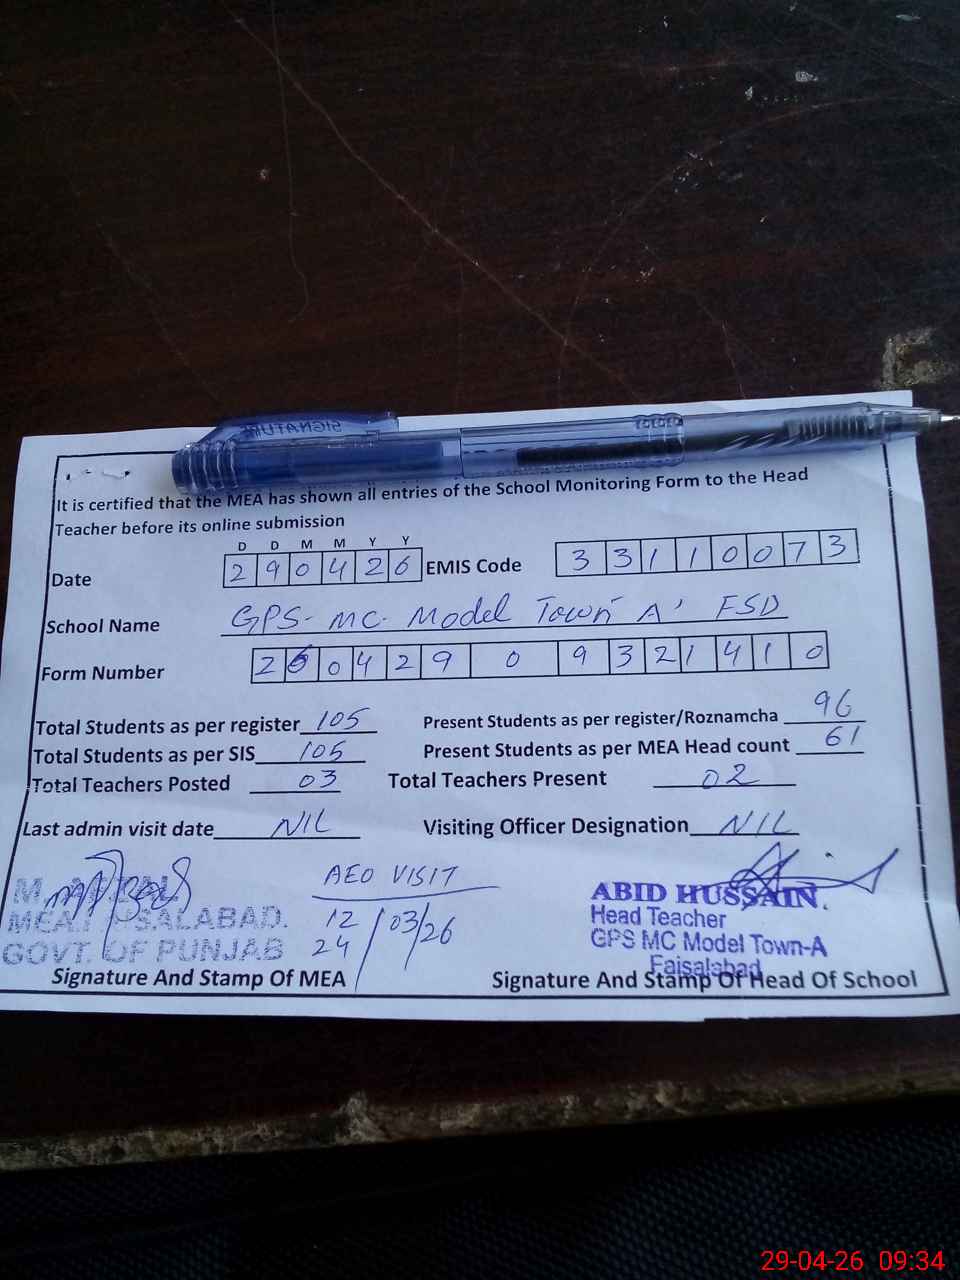 SIGNATURE
It is certified that the MEA has shown all entries of the School Monitoring Form to the Head
Teacher before its online submission
D D M M Y Y
Date 2 9 0 4 2 6 EMIS Code 3 3 1 1 0 0 7 3
School Name GPS- MC. Model Town 'A' FSD
Form Number 2 6 0 4 2 9 0 9 3 2 1 4 1 0
Total Students as per register 105 Present Students as per register/Roznamcha 96
Total Students as per SIS 105 Present Students as per MEA Head count 61
Total Teachers Posted 03 Total Teachers Present 02
Last admin visit date NIL Visiting Officer Designation NIL
AEO VISIT
12 / 03/26
24
M. AFZAL
MEA FAISALABAD.
GOVT. OF PUNJAB
Signature And Stamp Of MEA
ABID HUSSAIN
Head Teacher
GPS MC Model Town-A
Faisalabad
Signature And Stamp Of Head Of School
29-04-26 09:34